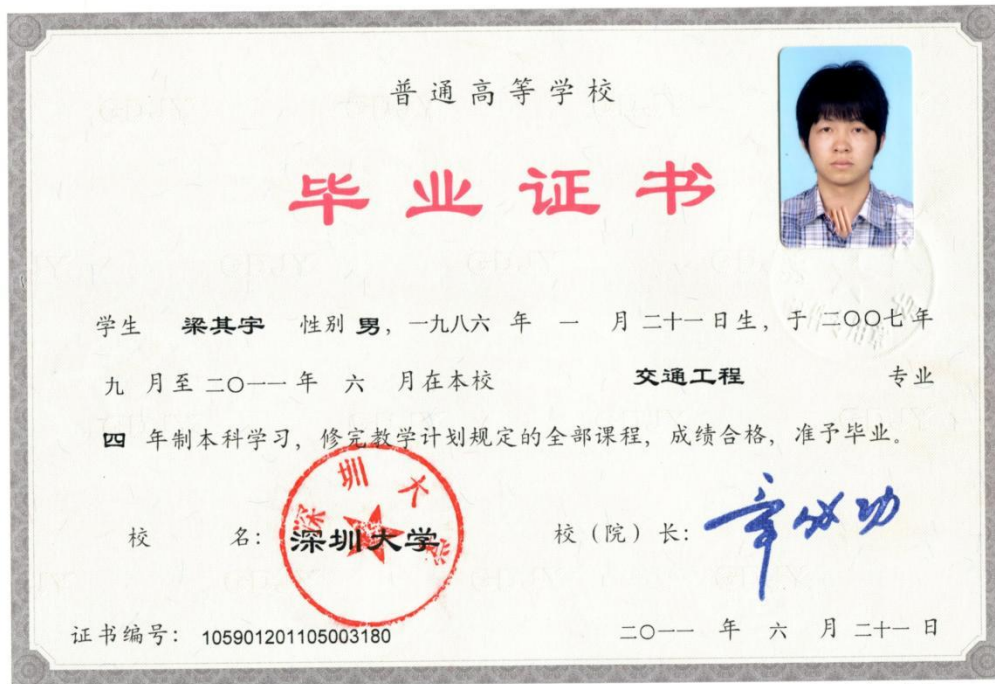 普通高等学校
毕业证书
学生 梁其宇 性别 男，一九八六 年 一 月 二十一 日生，于 二〇〇七 年
九 月至 二〇一一 年 六 月在本校 交通工程 专业
四 年制本科学习，修完教学计划规定的全部课程，成绩合格，准予毕业。
深圳大学
校 名： 深圳大学 校（院）长： 章必功
证书编号： 105901201105003180 二〇一一 年 六 月 二十一 日